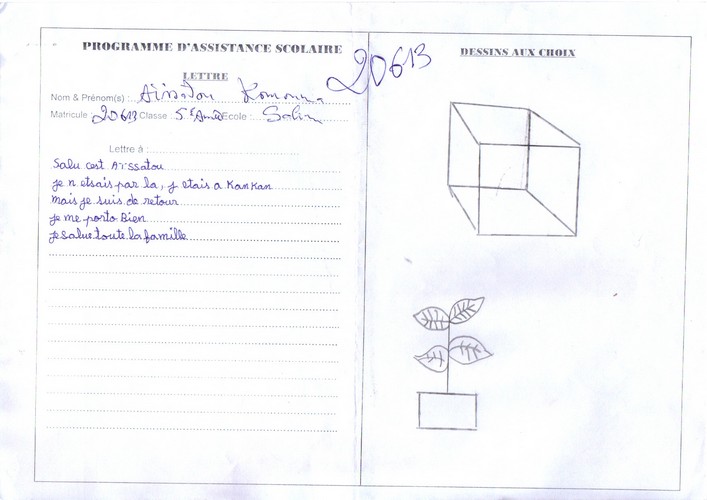 PROGRAMME D'ASSISTANCE SCOLAIRE
LETTRE
20613
Nom & Prénom(s) : Aïssatou
Matricule 20613 Classe : 5e Année Ecole :
Lettre à :
Salu cest Aïssatou
je n etsais par la, j etais a KanKan
mais je suis de retour
je me porto Bien
je salue toute la famille
DESSINS AUX CHOIX